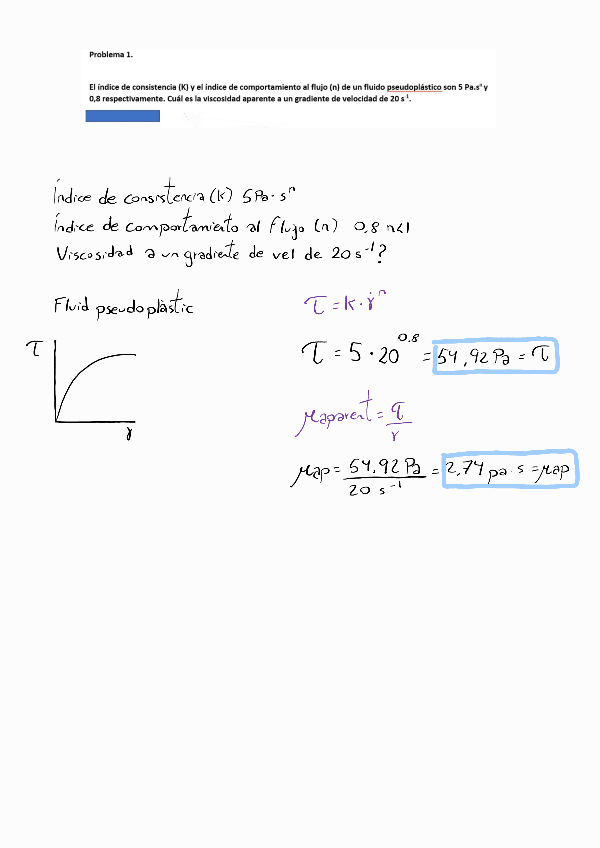 Problema 1.
El índice de consistencia (K) y el índice de comportamiento al flujo (n) de un fluido pseudoplástico son 5 Pa.sⁿ y
0,8 respectivamente. Cuál es la viscosidad aparente a un gradiente de velocidad de 20 s⁻¹.
Índice de consistencia (k) 5 Pa · sⁿ
Índice de comportamiento al flujo (n) 0,8 n<1
Viscosidad a un gradiente de vel de 20 s⁻¹?
Fluid pseudoplàstic
τ = k · γ̇ⁿ
τ
γ
τ = 5 · 20^0.8 = 54,92 Pa = τ
μaparent = τ/γ
μap = 54,92 Pa / 20 s⁻¹ = 2,74 pa · s = μap